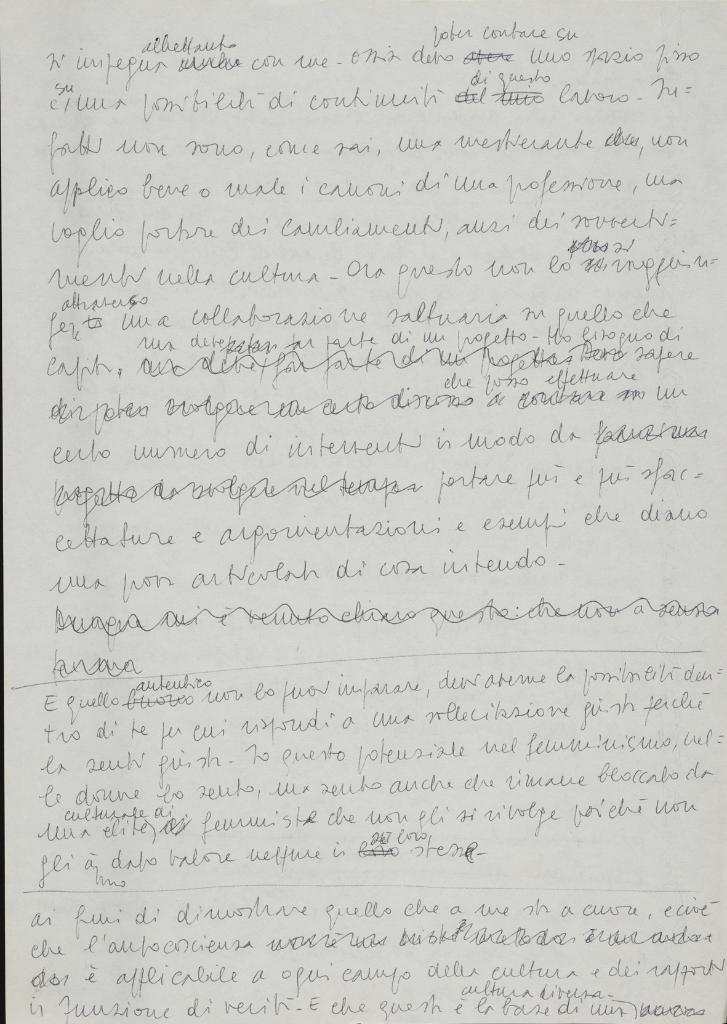 altrettanto poter contare su
si impegna con me – ossia devo uno spazio fisso
su di questo
e una possibilità di continuità del mio lavoro – In=
fatti non sono, come sai, una mestierante, non
applico bene o male i canoni di una professione, ma
voglio portare dei cambiamenti, anzi dei sovverti=
menti nella cultura – Ora questo non lo si raggiun=
attraverso
ge una collaborazione saltuaria su quello che
ma deve far parte di un progetto – Ho bisogno di
capita, ma deve far parte di un progetto sapere
che posso effettuare
un
certo numero di interventi in modo da
progetto da svolgere nel tempo portare più e più sfac=
cettature e argomentazioni e esempi che diano
una articolata di cosa intendo –
mi è venuto chiaro questo: che non a
autentico
E quello nuovo non lo puoi imparare, devi averne la possibilità den=
tro di te per cui rispondi a una sollecitazione giusta perché
la senti giusta – Io questo potenziale nel femminismo, nel=
le donne lo sento, ma sento anche che rimane bloccato da
culturale di
una élite femminista che non gli si rivolge poiché non
loro
gli dato valore neppure in stesse –
ai fini di dimostrare quello che a me sta a cuore, e cioè
che l'autocoscienza
è applicabile a ogni campo della cultura e dei rapporti
cultura diversa –
in funzione di verità – E che questa è la base di una